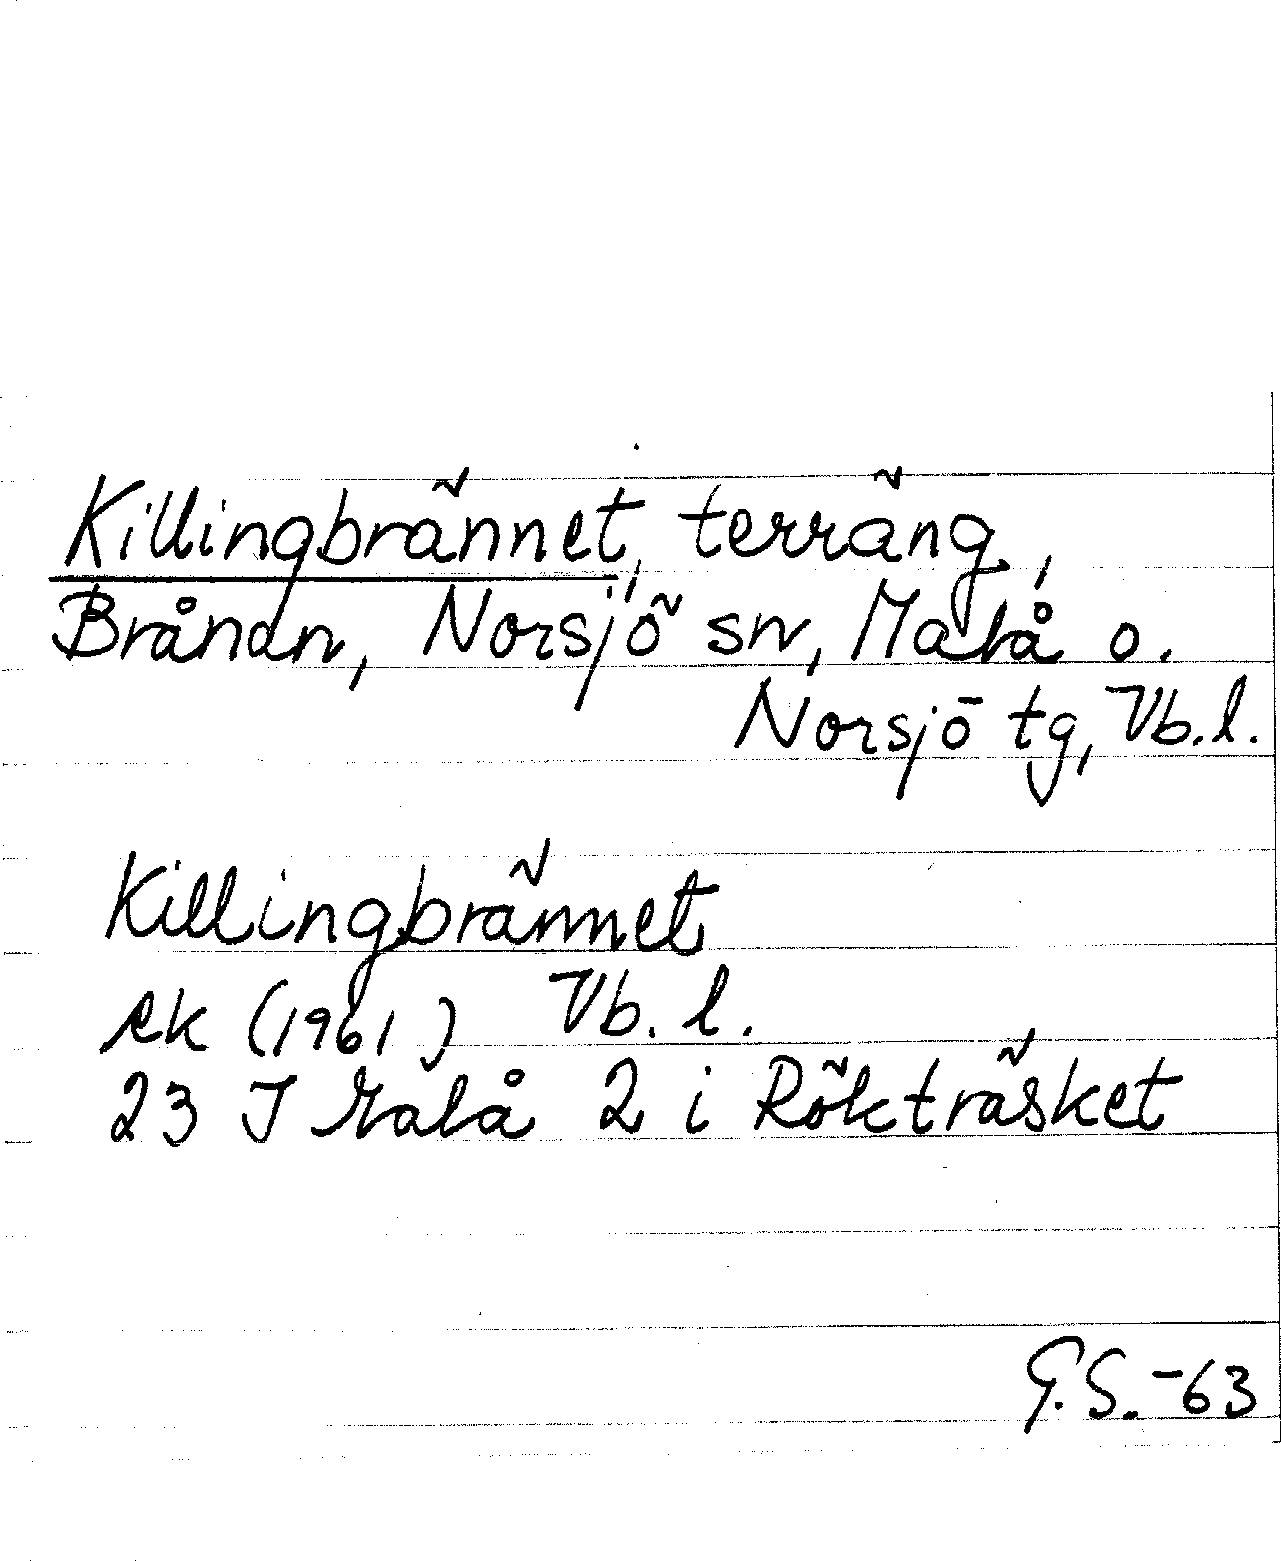 Killingbrännet, terräng,
Brånan, Norsjö sn, Malå o.
Norsjö tg, Vb.l.
Killingbrännet
ek (1961) Vb. l.
23 J Malå 2 i Rökträsket
G.S.-63